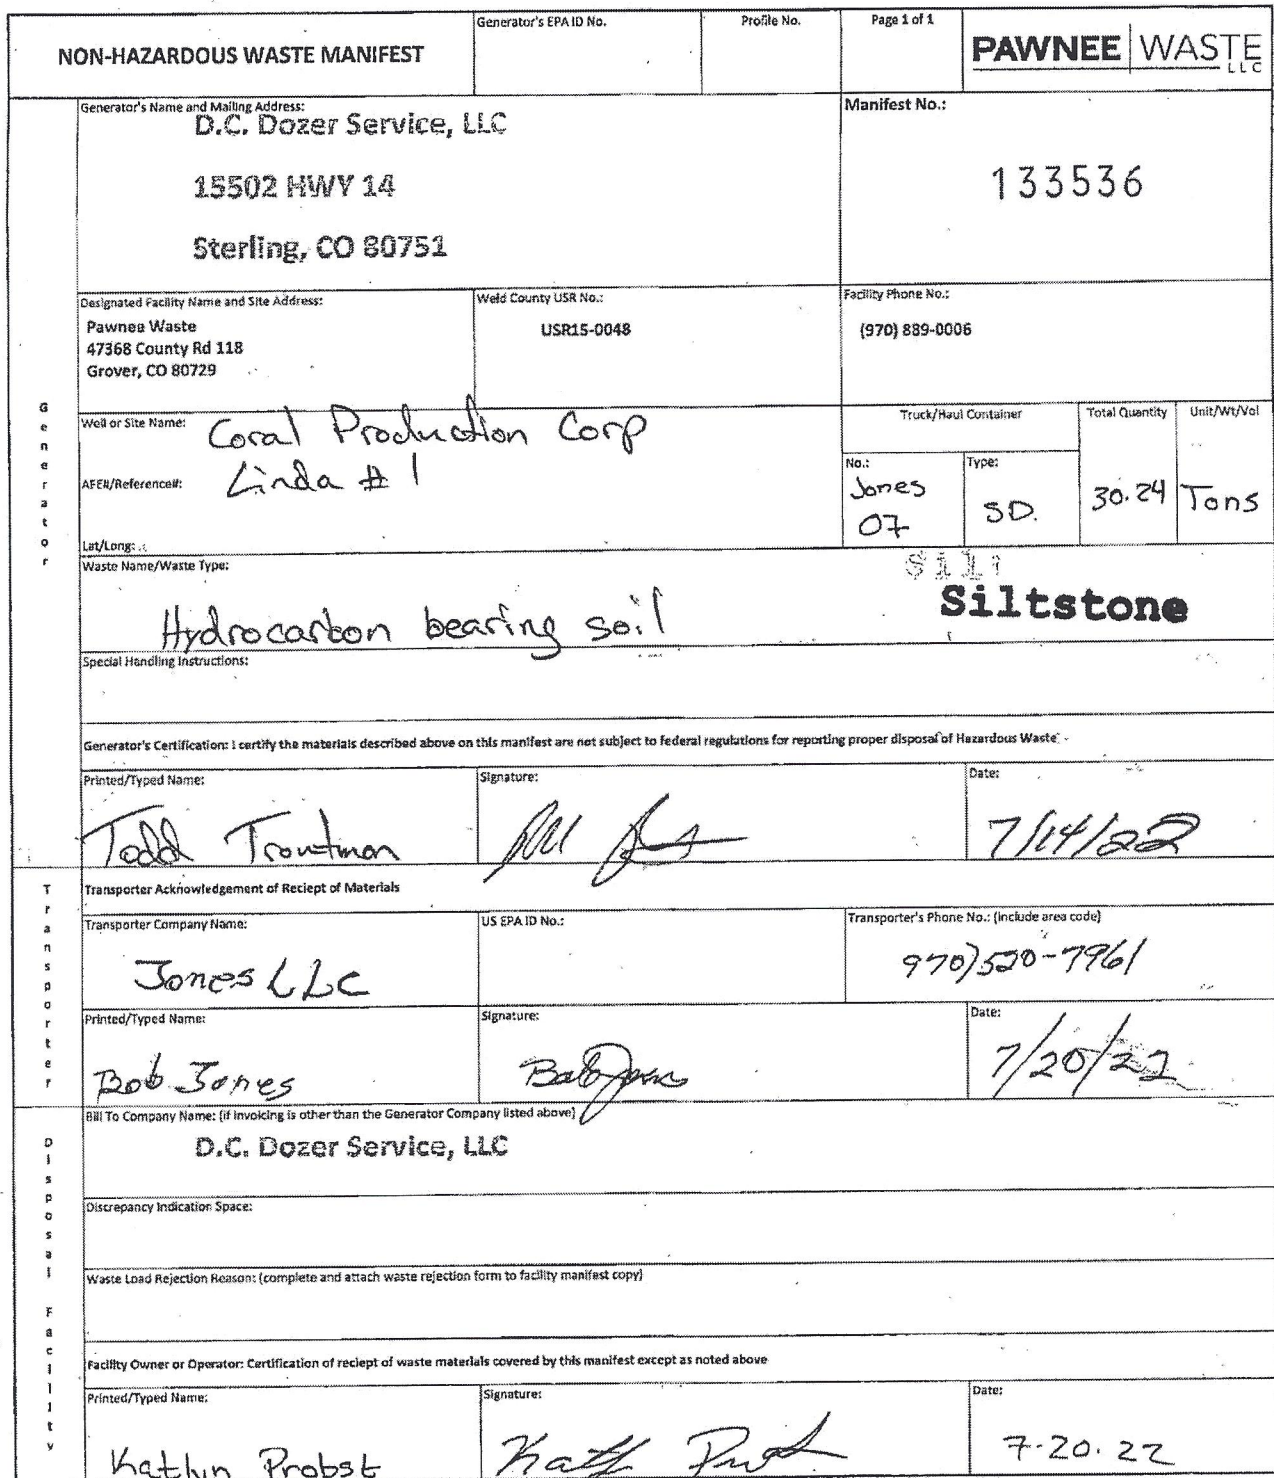 NON-HAZARDOUS WASTE MANIFEST
Generator's EPA ID No.
Profile No.
Page 1 of 1
PAWNEE WASTE
LLC
Generator's Name and Mailing Address:
D.C. Dozer Service, LLC
15502 HWY 14
Sterling, CO 80751
Manifest No.:
133536
Designated Facility Name and Site Address:
Pawnee Waste
47368 County Rd 118
Grover, CO 80729
Weld County USR No.:
USR15-0048
Facility Phone No.:
(970) 889-0006
Generator
Well or Site Name: Coral Production Corp
AFE#/Reference#: Linda # 1
Lat/Long:
Truck/Haul Container
No.:
Jones
07
Type:
SD.
Total Quantity
30.24
Unit/Wt/Vol
Tons
Waste Name/Waste Type:
Hydrocarbon bearing soil
Silt
Siltstone
Special Handling Instructions:
Generator's Certification: I certify the materials described above on this manifest are not subject to federal regulations for reporting proper disposal of Hazardous Waste
Printed/Typed Name:
Todd Troutman
Signature:
Date:
7/14/22
Transporter
Transporter Acknowledgement of Reciept of Materials
Transporter Company Name:
Jones LLC
US EPA ID No.:
Transporter's Phone No.: (include area code)
970)520-7961
Printed/Typed Name:
Bob Jones
Signature:
Bob Jones
Date:
7/20/22
Disposal Facility
Bill To Company Name: (if invoicing is other than the Generator Company listed above)
D.C. Dozer Service, LLC
Discrepancy Indication Space:
Waste Load Rejection Reason: (complete and attach waste rejection form to facility manifest copy)
Facility Owner or Operator: Certification of reciept of waste materials covered by this manifest except as noted above
Printed/Typed Name:
Katlyn Probst
Signature:
Date:
7-20-22